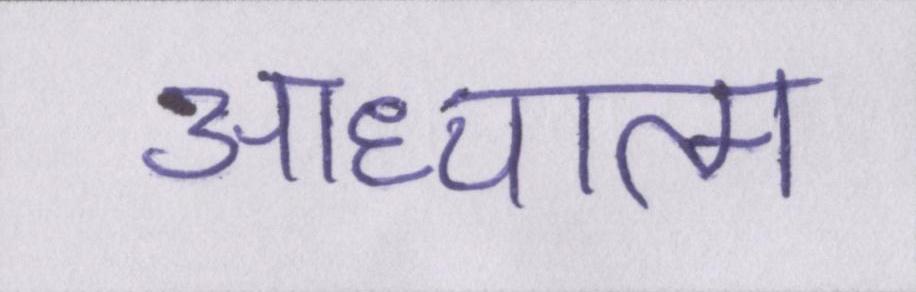 आध्यात्म